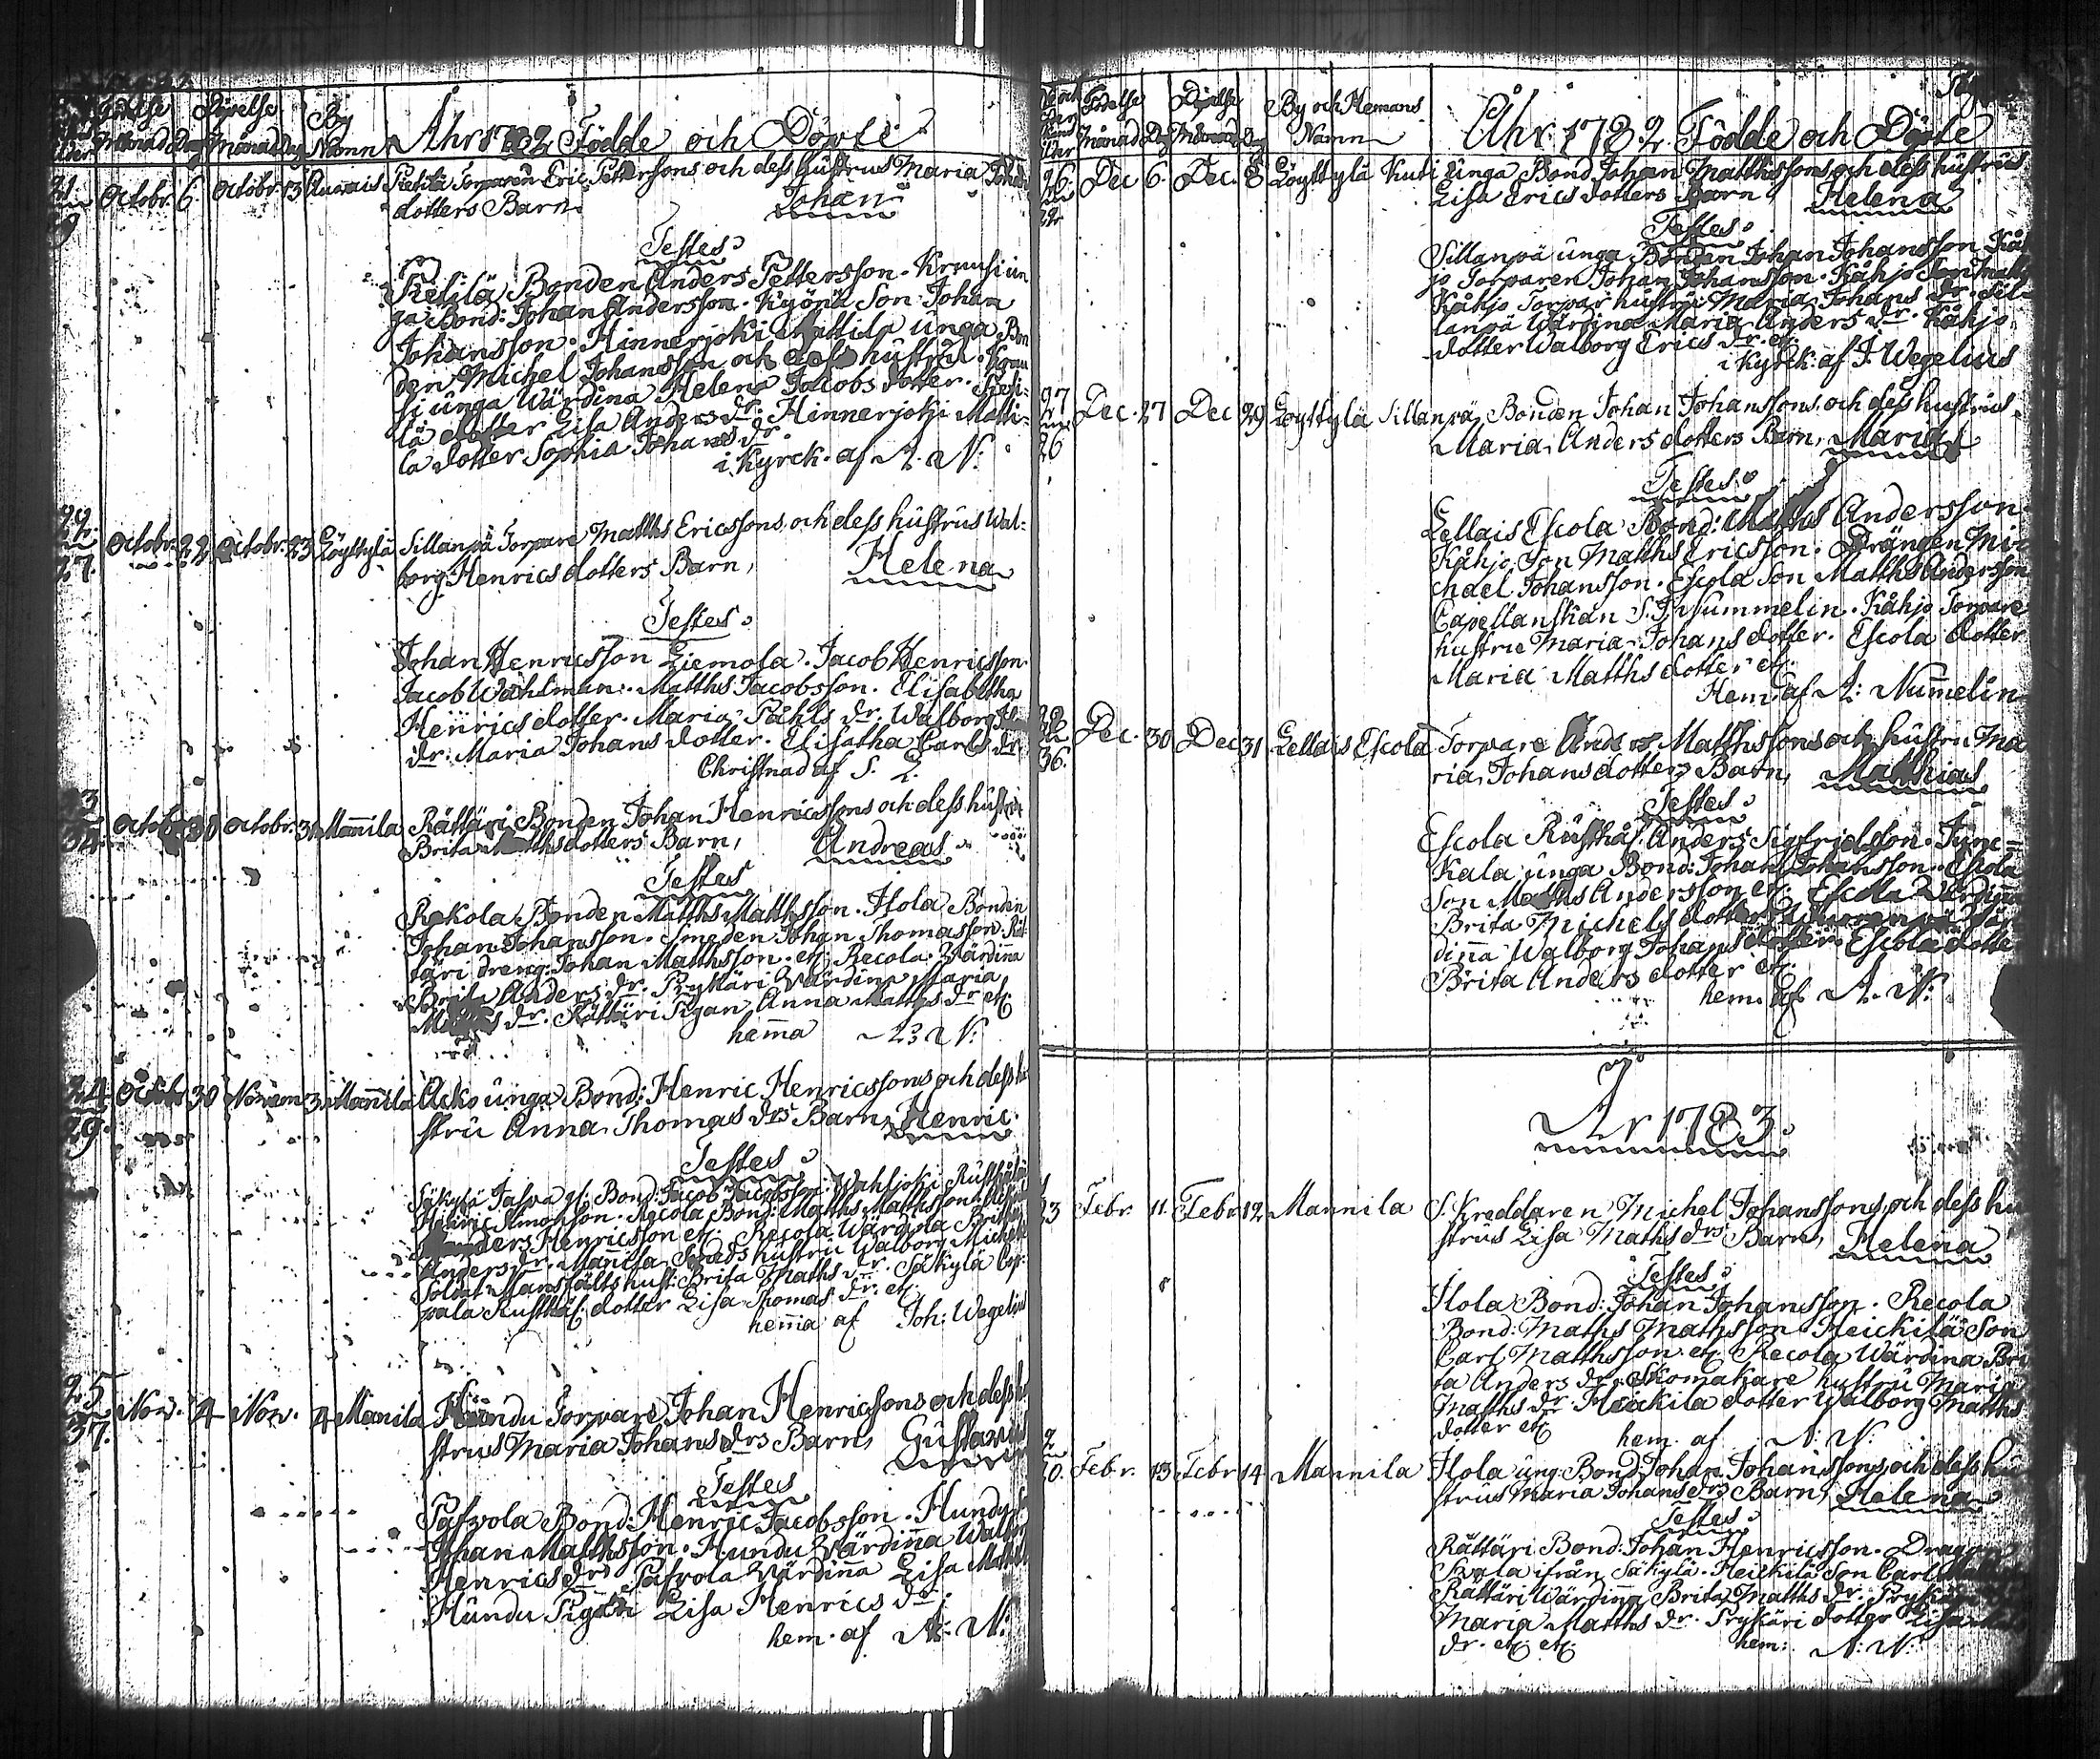 Födelse Döpelse By
Månad Dag Månad Dag Namn Åhr 1782 Födde och Döpte
21 Octobr. 6. Octobr. 13 Pietilä Torparen Eric Pettersons och dess hustrus Maria
29 dotters Barn, Johan
Testes
Bonden Anders Pettersson. Krausi un
ga Bond: Johan Andersson. Kyönä Son Johan
Johansson. Hinnerjoki Mattila unga Bon
den Michel Johansson och dess hustru. Krau
si unga Wärdina Helena Jacobs dotter.
lä dotter Lisa Anders dr. Hinnerjoki Matti
la dotter Sophia Johans dr.
i Kyrck. af A. N:
22. Octobr. 22 Octobr. 23 Löyttylä Sillanpä Torpare Matths Ericssons och dess hustrus Wal=
27. borg Henrics dotters Barn, Helena
Testes
Johan Henricsson Liemola. Jacob Henricsson
Jacob Wahlman. Matths Jacobsson. Elisabetha
Henrics dotter. Maria Påhls dr. Walborg
dr. Maria Johans dotter. Elisatha Carls dr
Christnad af S. L.
23 Octob 30 Octobr. 31 Mannila Rättäri Bonden Johan Henricssons och dess hustru
Brita Matthsdotters Barn, Andreas
Testes
Rekola Bonden Matths Matthsson. Ilola Bonden
Johan Johansson. Smeden Johan Thomasson. Rät
täri dreng Johan Matthsson. etc Recola Wärdinna
Brita Anders dr. Prykäri Wärdina Maria
dr. Rättäri Pigan Anna Matths dr etc
hemma N:
24 Octobr 30 Novem 3 Mannila Acko unga Bond: Henric Henricssons och dess hu
29. stru Anna Thomas drs Barn, Henric
Testes
Säkylä Bond: Jacob Jacobsson. Rusthåla
Henric Simonson. Recola Bond: Matths Matthsson.
Anders Henricsson etc Recola Wärdina Brita
Anders dr. Mannila hustru Walborg Michels
Soldat Mansfälts hust: Brita Matths dr. Säkylä
pala Rusthål: dotter Lisa Thomas dr. etc
hemma af Joh: Wegelius
25 Nov. 4 Nov. 4 Manila Hundu Torpare Johan Henricssons och dess hu
37. strus Maria Johans drs Barn, Gustavus
Testes
Påfvola Bond: Henric Jacobsson. Hundu
Johan Matthsson. Hundu Wärdinna Walbor
Henrics drs Påfvola Wärdinna Lisa
Hundu Pigan Lisa Henrics dr.
hem. af A: N:
Födelse Döpelse By och Hemans
Månad Dag Månad Dag Namn Åhr 1782 Födde och Döpte
26. Dec 6. Dec. 8 Löyttylä Kuti Unga Bond Johan Matthssons och dess hustrus
22 Lisa Erics dotters Barn Helena
Testes
Sillanpä unga Bonden Johan Johansson Kåh
jo Torparen Johan Johansson. Kåhjo Son
Kåhjo Torpar hustru Maria Johans dr. Sil=
lanpä Wärdina Maria Anders dr. Kåhjo
dotter Walborg Erics dr. etc.
i Kyrck: af J. Wegelius
27 Dec. 27 Dec 29 Löyttylä Sillanpä Bonden Johan Johanssons och dess hustrus
26 Maria Anders dotters Barn, Maria
Testes
Lellais Escola Bond: Andersson.
Kåhjo Son Matths Ericsson. Drängen Mi
chael Johansson. Escola Son Matths Andersson
Capellanskan Nummelin. Kåhjo Torpare
hustru Maria Johans dotter. Escola dotter
Maria Matths dotter etc.
Hem: af A: Nummelin
Dec. 30 Dec 31 Lellais Escola Torpare Anders Matthssons och hustru Ma
36. ria Johansdotters Barn, Matthias
Testes
Escola Rusthål: Anders Sigfridsson.
kala unga Bond: Johan Johansson. Escola
Son Matths Andersson etc. Escola Wärdinna
Brita Michels dotter.
dinna Walborg Johans dotter. Escola dotte
Brita Anders dotter etc.
hem. af A. N.
År 1783.
23 Febr. 11. Febr. 12 Mannila S. Kreddaren Michel Johanssons och dess hu
strus Lisa Maths drs Barn, Helena
Testes
Ilola Bond: Johan Johansson. Recola
Bond: Maths Mathsson Heickilä Son
Carl Matthsson. etc Recola Wärdina Bri
ta Anders dr. Skomakare hustru Maria
Matths dr. Heickila dotter Walborg Matths
dotter etc hem. af A. N.
2
20. Febr. 13 Febr 14 Mannila Ilola ung Bond: Johan Johanssons och dess hu
strus Maria Johans drs Barn, Helena
Testes
Rättäri Bond: Johan Henricsson. Dragon
ifrån Säkylä. Heickilä Son Carl
Rättäri Wärdinn Brita Matths dr:
Maria Matths dr. Prykäri dotter Lisa
dr. etc etc. hem: A: N: